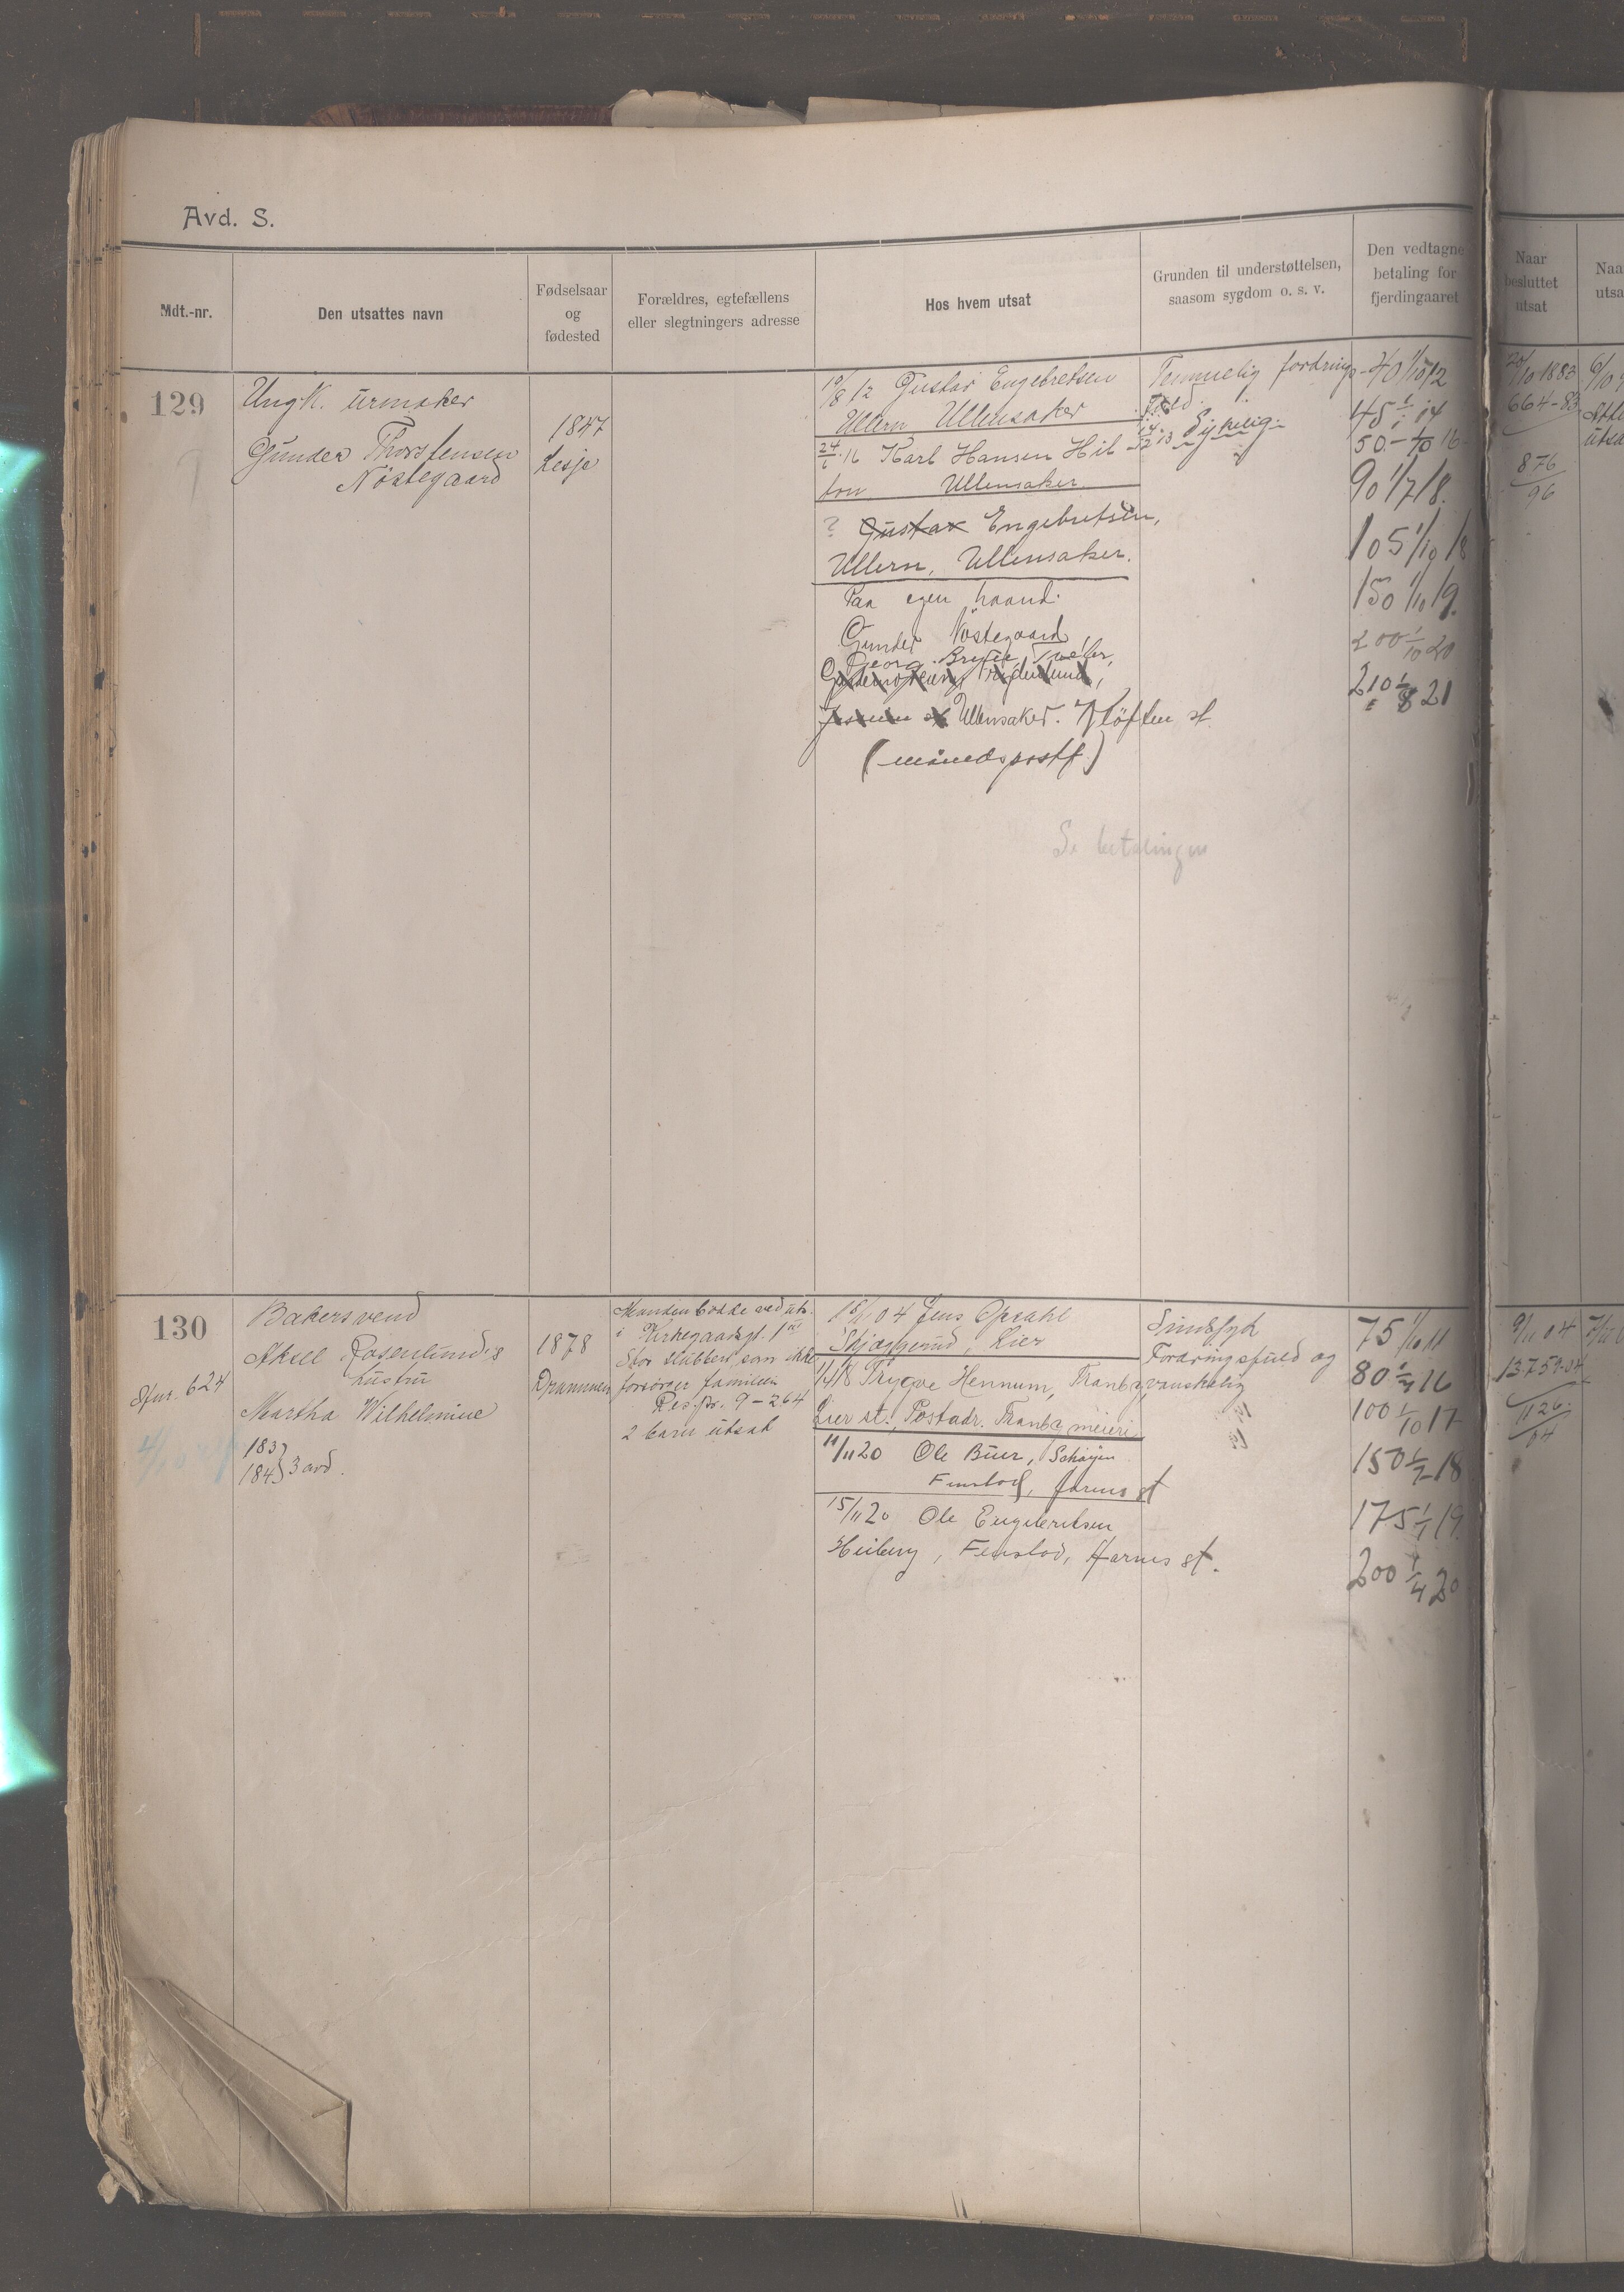 Avd. S.
Mdt.-nr.
Den utsattes navn
Fødselsaar
og
fødested
Forældres, egtefællens
eller slegtningers adresse
Hos hvem utsat
Grunden til understøttelsen,
saasom sygdom o. s. v.
Den vedtagne
betaling for
fjerdingaaret
Naar
besluttet
utsat
129
Ungk. urmaker
Gunder Thorstensen
Nöstegaard
1847
Lesje
19/8 12 Gustav Engebretsen
Ullern Ullensaker
24/6 16 Karl Hansen Hil
ton Ullensaker
? Gustav Engebretsen,
Ullern, Ullensaker.
Paa egen haand.
Gunder Nöstegaard
Georg
Ullensaker. Kløften st.
(månedspostf.)
Se betalingen
Temmelig fordrings-
fuld.
Sykelig.
40 1/10 12
45 1/1 14
50.- 1/10 16
90 1/7 18.
105 1/10 18
150 1/10 19.
200 1/10 20
210 1/8 21
20/10 1883
664-83
876
96
130
Sfnr. 624
Bakersvend
Aksel Rosenlunds
hustru
Martha Wilhelmine
183
184 } 3 avd.
1878
Drammen
Manden bodde ved uts.
i Kirkegaardsgt. 1
Stor slubbert, som ikke
forsörger familien
Des.pr. 9-264
2 barn utsat
18/11 04 Jens Opsahl
Skjæggerud, Lier
1/4 18 Trygve Hennum, Tranby
Lier st., Postadr. Tranby meieri
11/11 20 Ole Buer, Schøyen
Fenstad, Aarnes st
15/11 20 Ole Engebretsen
Heiberg, Fenstad, Aarnes st.
Sindssyk
Fordringsfuld og
vanskelig
75 1/10 11
80 1/7 16
100 1/10 17
150 1/7 18
175 1/7 19.
200 1/4 20
9/11 04
13759-04
1126
04